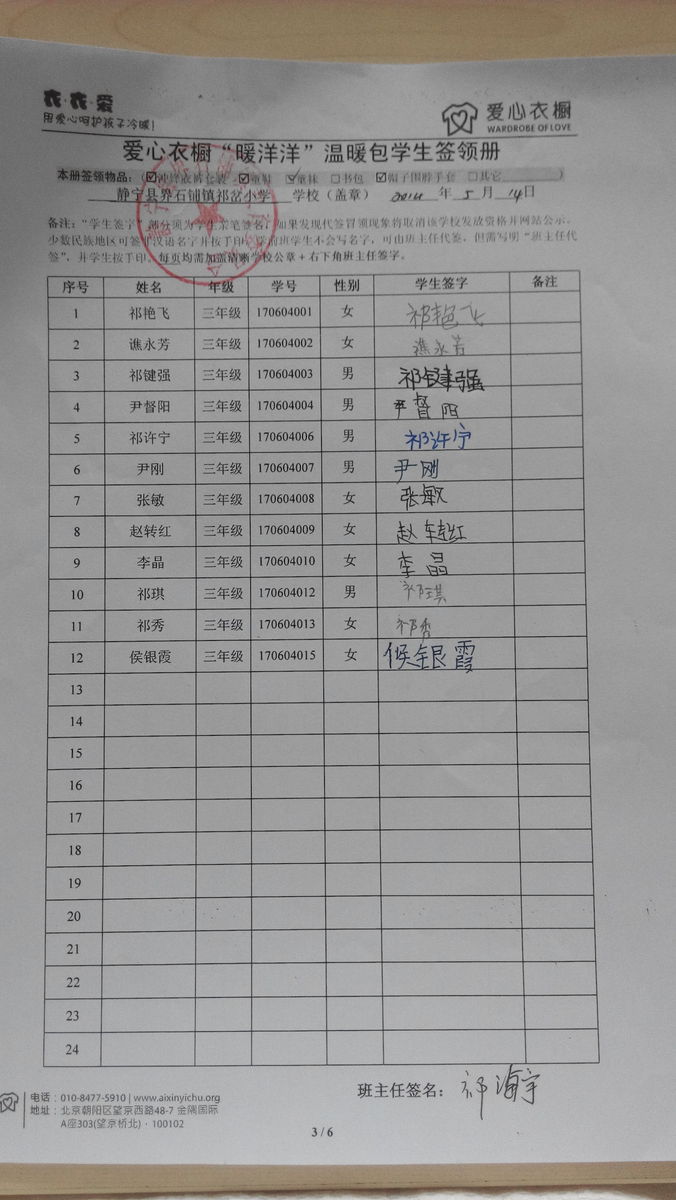 衣·衣·爱
用爱心呵护孩子冷暖!
爱心衣橱
WARDROBE OF LOVE
爱心衣橱“暖洋洋”温暖包学生签领册
本册签领物品:(☑冲锋衣裤套装 ☑童鞋 ☑童袜 □书包 ☑帽子围脖手套 □其它 )
静宁县界石铺镇祁岔小学 学校(盖章) 2014 年 5 月 14 日
备注:“学生签字”部分须为学生亲笔签名,如果发现代签冒领现象将取消该学校发放资格并网站公示。
少数民族地区可签非汉语名字并按手印,学前班学生不会写名字,可由班主任代签,但需写明“班主任代
签”,并学生按手印。每页均需加盖清晰学校公章+右下角班主任签字。
序号 姓名 年级 学号 性别 学生签字 备注
1 祁艳飞 三年级 170604001 女 祁艳飞
2 谯永芳 三年级 170604002 女 谯永芳
3 祁键强 三年级 170604003 男 祁键强
4 尹督阳 三年级 170604004 男 尹督阳
5 祁许宁 三年级 170604006 男 祁许宁
6 尹刚 三年级 170604007 男 尹刚
7 张敏 三年级 170604008 女 张敏
8 赵转红 三年级 170604009 女 赵转红
9 李晶 三年级 170604010 女 李晶
10 祁琪 三年级 170604012 男 祁琪
11 祁秀 三年级 170604013 女 祁秀
12 侯银霞 三年级 170604015 女 侯银霞
13
14
15
16
17
18
19
20
21
22
23
24
班主任签名: 祁海宇
电话:010-8477-5910 | www.aixinyichu.org
地址:北京朝阳区望京西路48-7 金隅国际
A座303(望京桥北)·100102
3 / 6